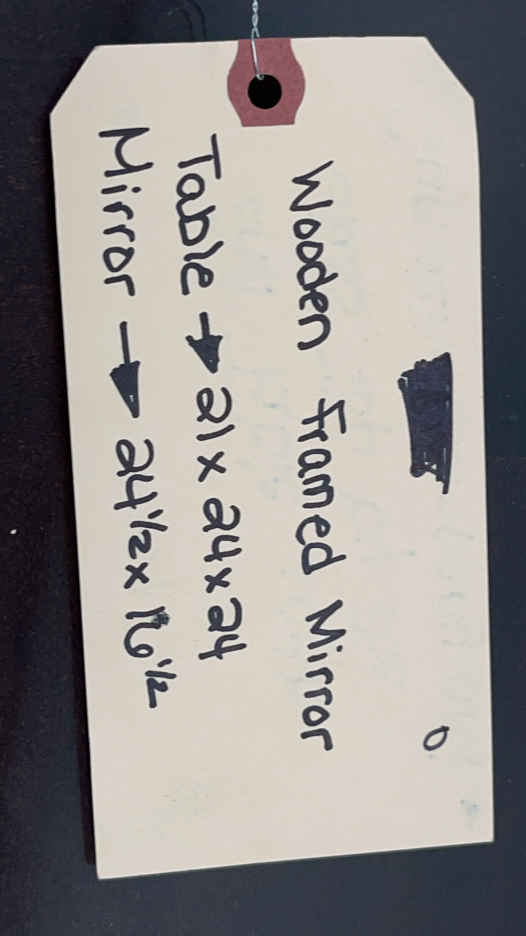 0
Wooden Framed Mirror
Table → 21 x 24 x 24
Mirror → 24 1/2 x 16 1/2